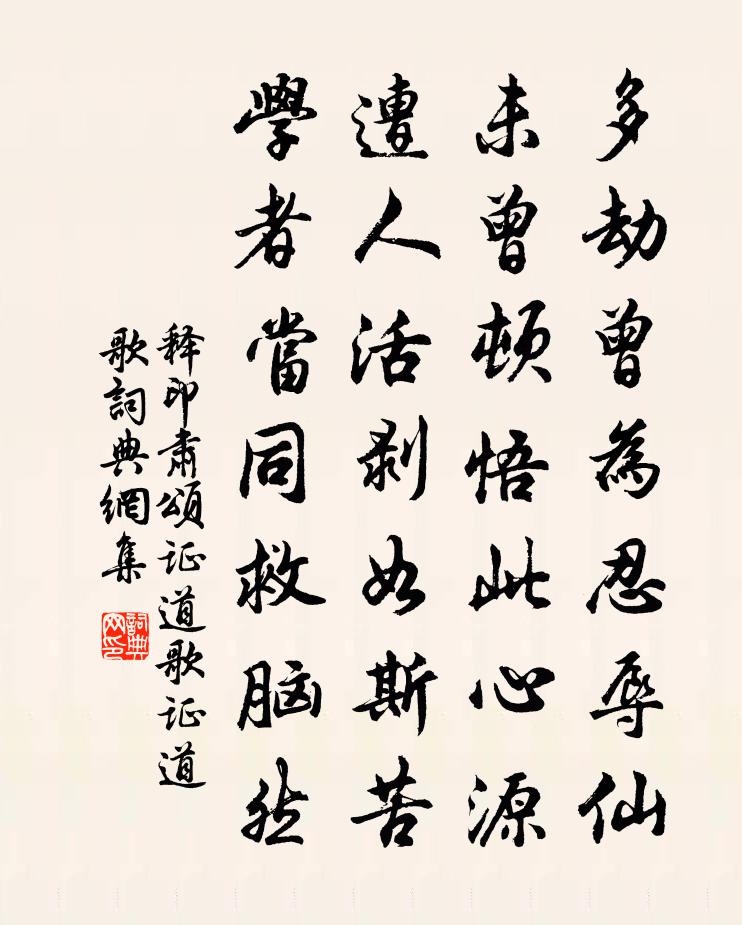 多劫曾為忍辱仙
未曾頓悟此心源
遭人活剥如斯苦
學者當同救脑然
释印肃頌证道歌证道
歌詞典網集
詞典
网印